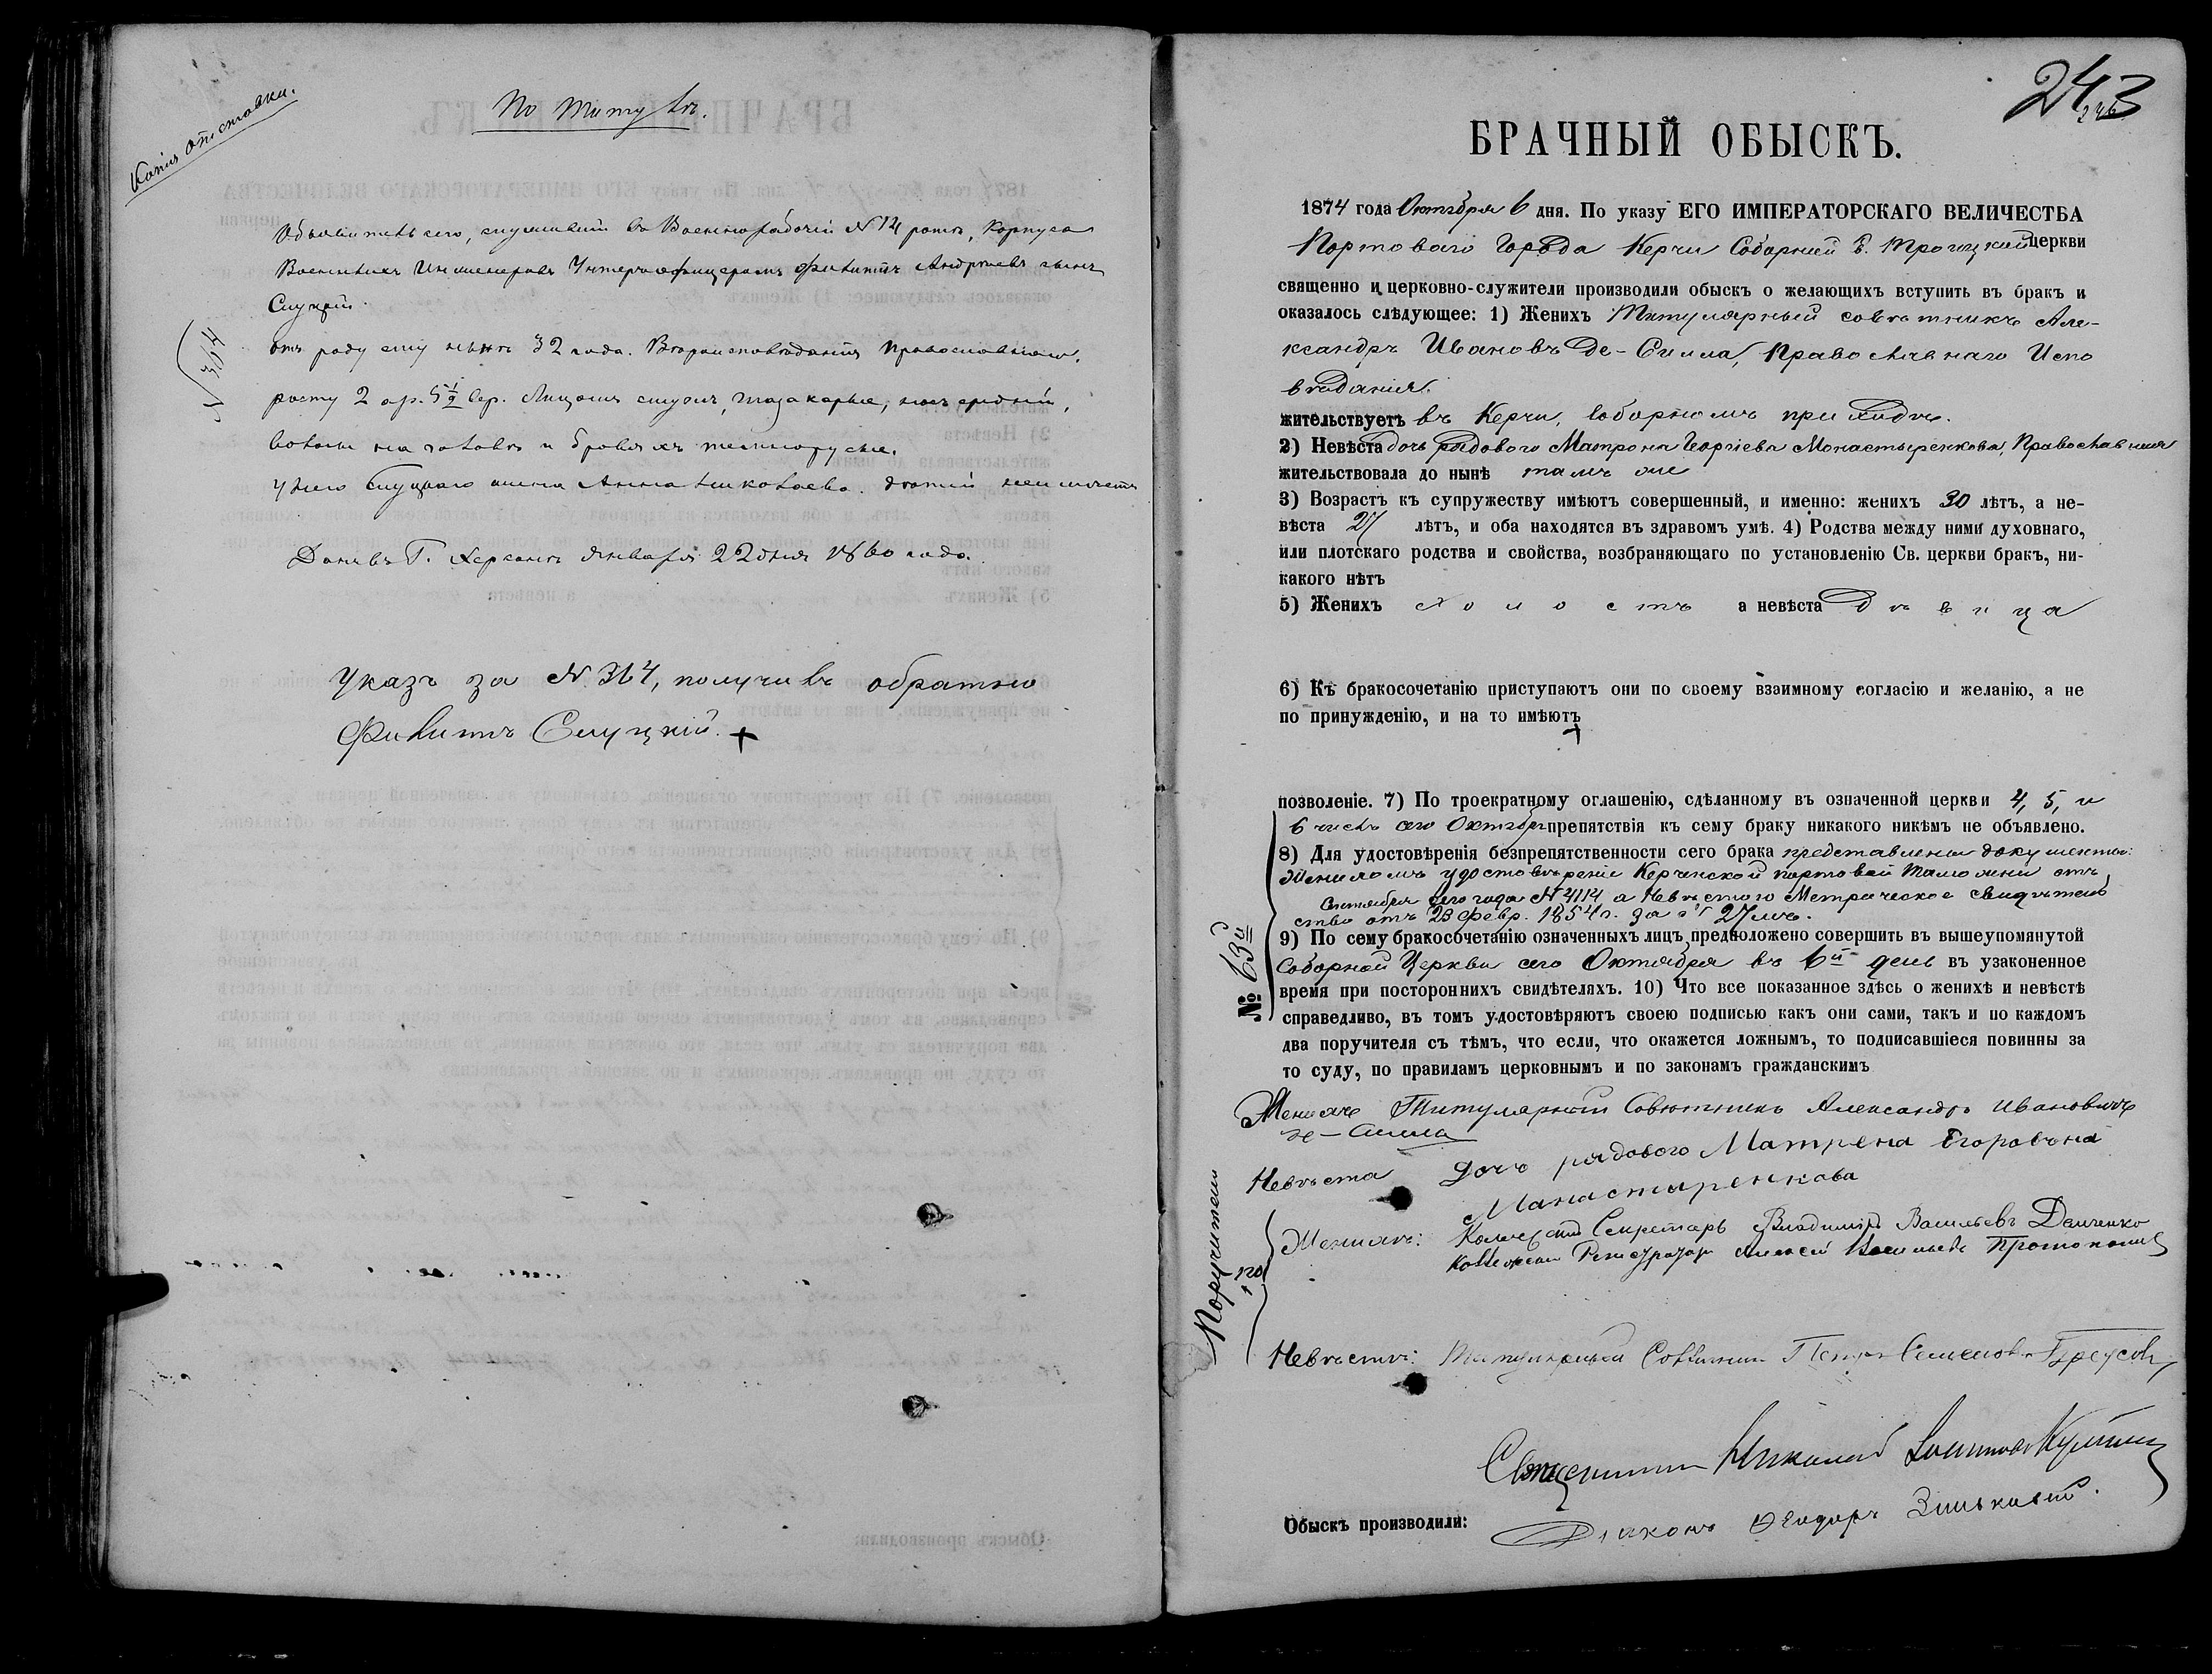 Копія отставки.
По титулъ.
Объявитель сего, служивый въ Военнорабочій № 14 ротѣ, Корпуса
Военныхъ Инженеровъ Унтеръ офицеромъ Филиппъ Андреевъ сынъ
Слуцкій
отъ роду ему нынѣ 32 года. Вѣроисповѣданія православнаго,
росту 2 ар. 5 1/2 вер. Лицомъ смуглъ, глаза каріе, носъ средній,
волосы на головѣ и бровяхъ темнорусые.
У него Слуцкаго жена Анна Николаева. дѣтей неимѣетъ
Данъ въ Г. Херсонѣ Января 22 дня 1860 года.
№ 314
Указъ за № 314, получилъ обратно
Филиппъ Слуцкій. +
243
БРАЧНЫЙ ОБЫСКЪ.
1874 года Октября 6 дня. По указу ЕГО ИМПЕРАТОРСКАГО ВЕЛИЧЕСТВА
Портоваго Города Керчи Соборной С. Троицкой церкви
священно и церковно-служители производили обыскъ о желающихъ вступить въ бракъ и
оказалось слѣдующее: 1) Женихъ Титулярный совѣтникъ Але-
ксандръ Ивановъ Де-Силла, Православнаго Испо
вѣданія.
жительствуетъ въ Керчи, Соборномъ приходѣ.
2) Невѣста дочь рядового Матрона Георгіева Монастыренкова, Православная
жительствовала до нынѣ тамъ же
3) Возрастъ къ супружеству имѣютъ совершенный, и именно: женихъ 30 лѣтъ, а не-
вѣста 27 лѣтъ, и оба находятся въ здравомъ умѣ. 4) Родства между ними духовнаго,
или плотскаго родства и свойства, возбраняющаго по установленію Св. церкви бракъ, ни-
какого нѣтъ
5) Женихъ холостъ а невѣста дѣвица
6) Къ бракосочетанію приступаютъ они по своему взаимному согласію и желанію, а не
по принужденію, и на то имѣютъ
+
позволеніе. 7) По троекратному оглашенію, сдѣланному въ означенной церкви 4, 5, и
6 числъ сего Октября препятствія къ сему браку никакого никѣмъ не объявлено.
8) Для удостовѣренія безпрепятственности сего брака представлены документы:
Женихомъ удостовѣреніе Керченской портовой Таможни отъ
Сентября сего года № 4114 а Невѣстою Метрическое свидѣтель
ство отъ 23 февр. 1854 г. за № 27 мъ.
№ 63й
9) По сему бракосочетанію означенныхъ лицъ предположено совершить въ вышеупомянутой
Соборной Церкви сего Октября въ 6й день въ узаконенное
время при постороннихъ свидѣтеляхъ. 10) Что все показанное здѣсь о женихѣ и невѣстѣ
справедливо, въ томъ удостовѣряютъ своею подписью какъ они сами, такъ и по каждомъ
два поручителя съ тѣмъ, что если, что окажется ложнымъ, то подписавшіеся повинны за
то суду, по правиламъ церковнымъ и по законамъ гражданскимъ
Женихъ Титулярный Совѣтникъ Александръ Ивановичъ
де-Силла
Невѣста Дочь рядового Матрена Егоровъна
Манастыренкова
Поручители по
Женихѣ: Коллежскій Секретарь Владиміръ Васильевъ Демченко
Коллежскій Регистраторъ Алексѣй Васильевъ
Невѣстѣ: Титулярный Совѣтникъ Петръ Семеновъ
Священникъ Николай
Обыскъ производили:
Діаконъ Ѳеодоръ Зиньковскій.